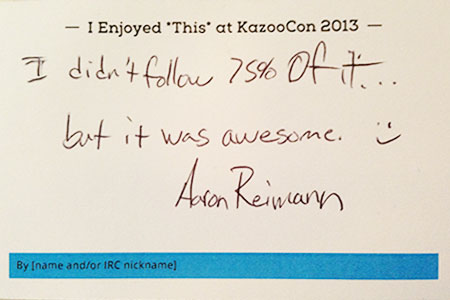 — I Enjoyed *This* at KazooCon 2013 —
I didn't follow 75% Of it...
but it was awesome. :)
Aaron Reimann
By [name and/or IRC nickname]